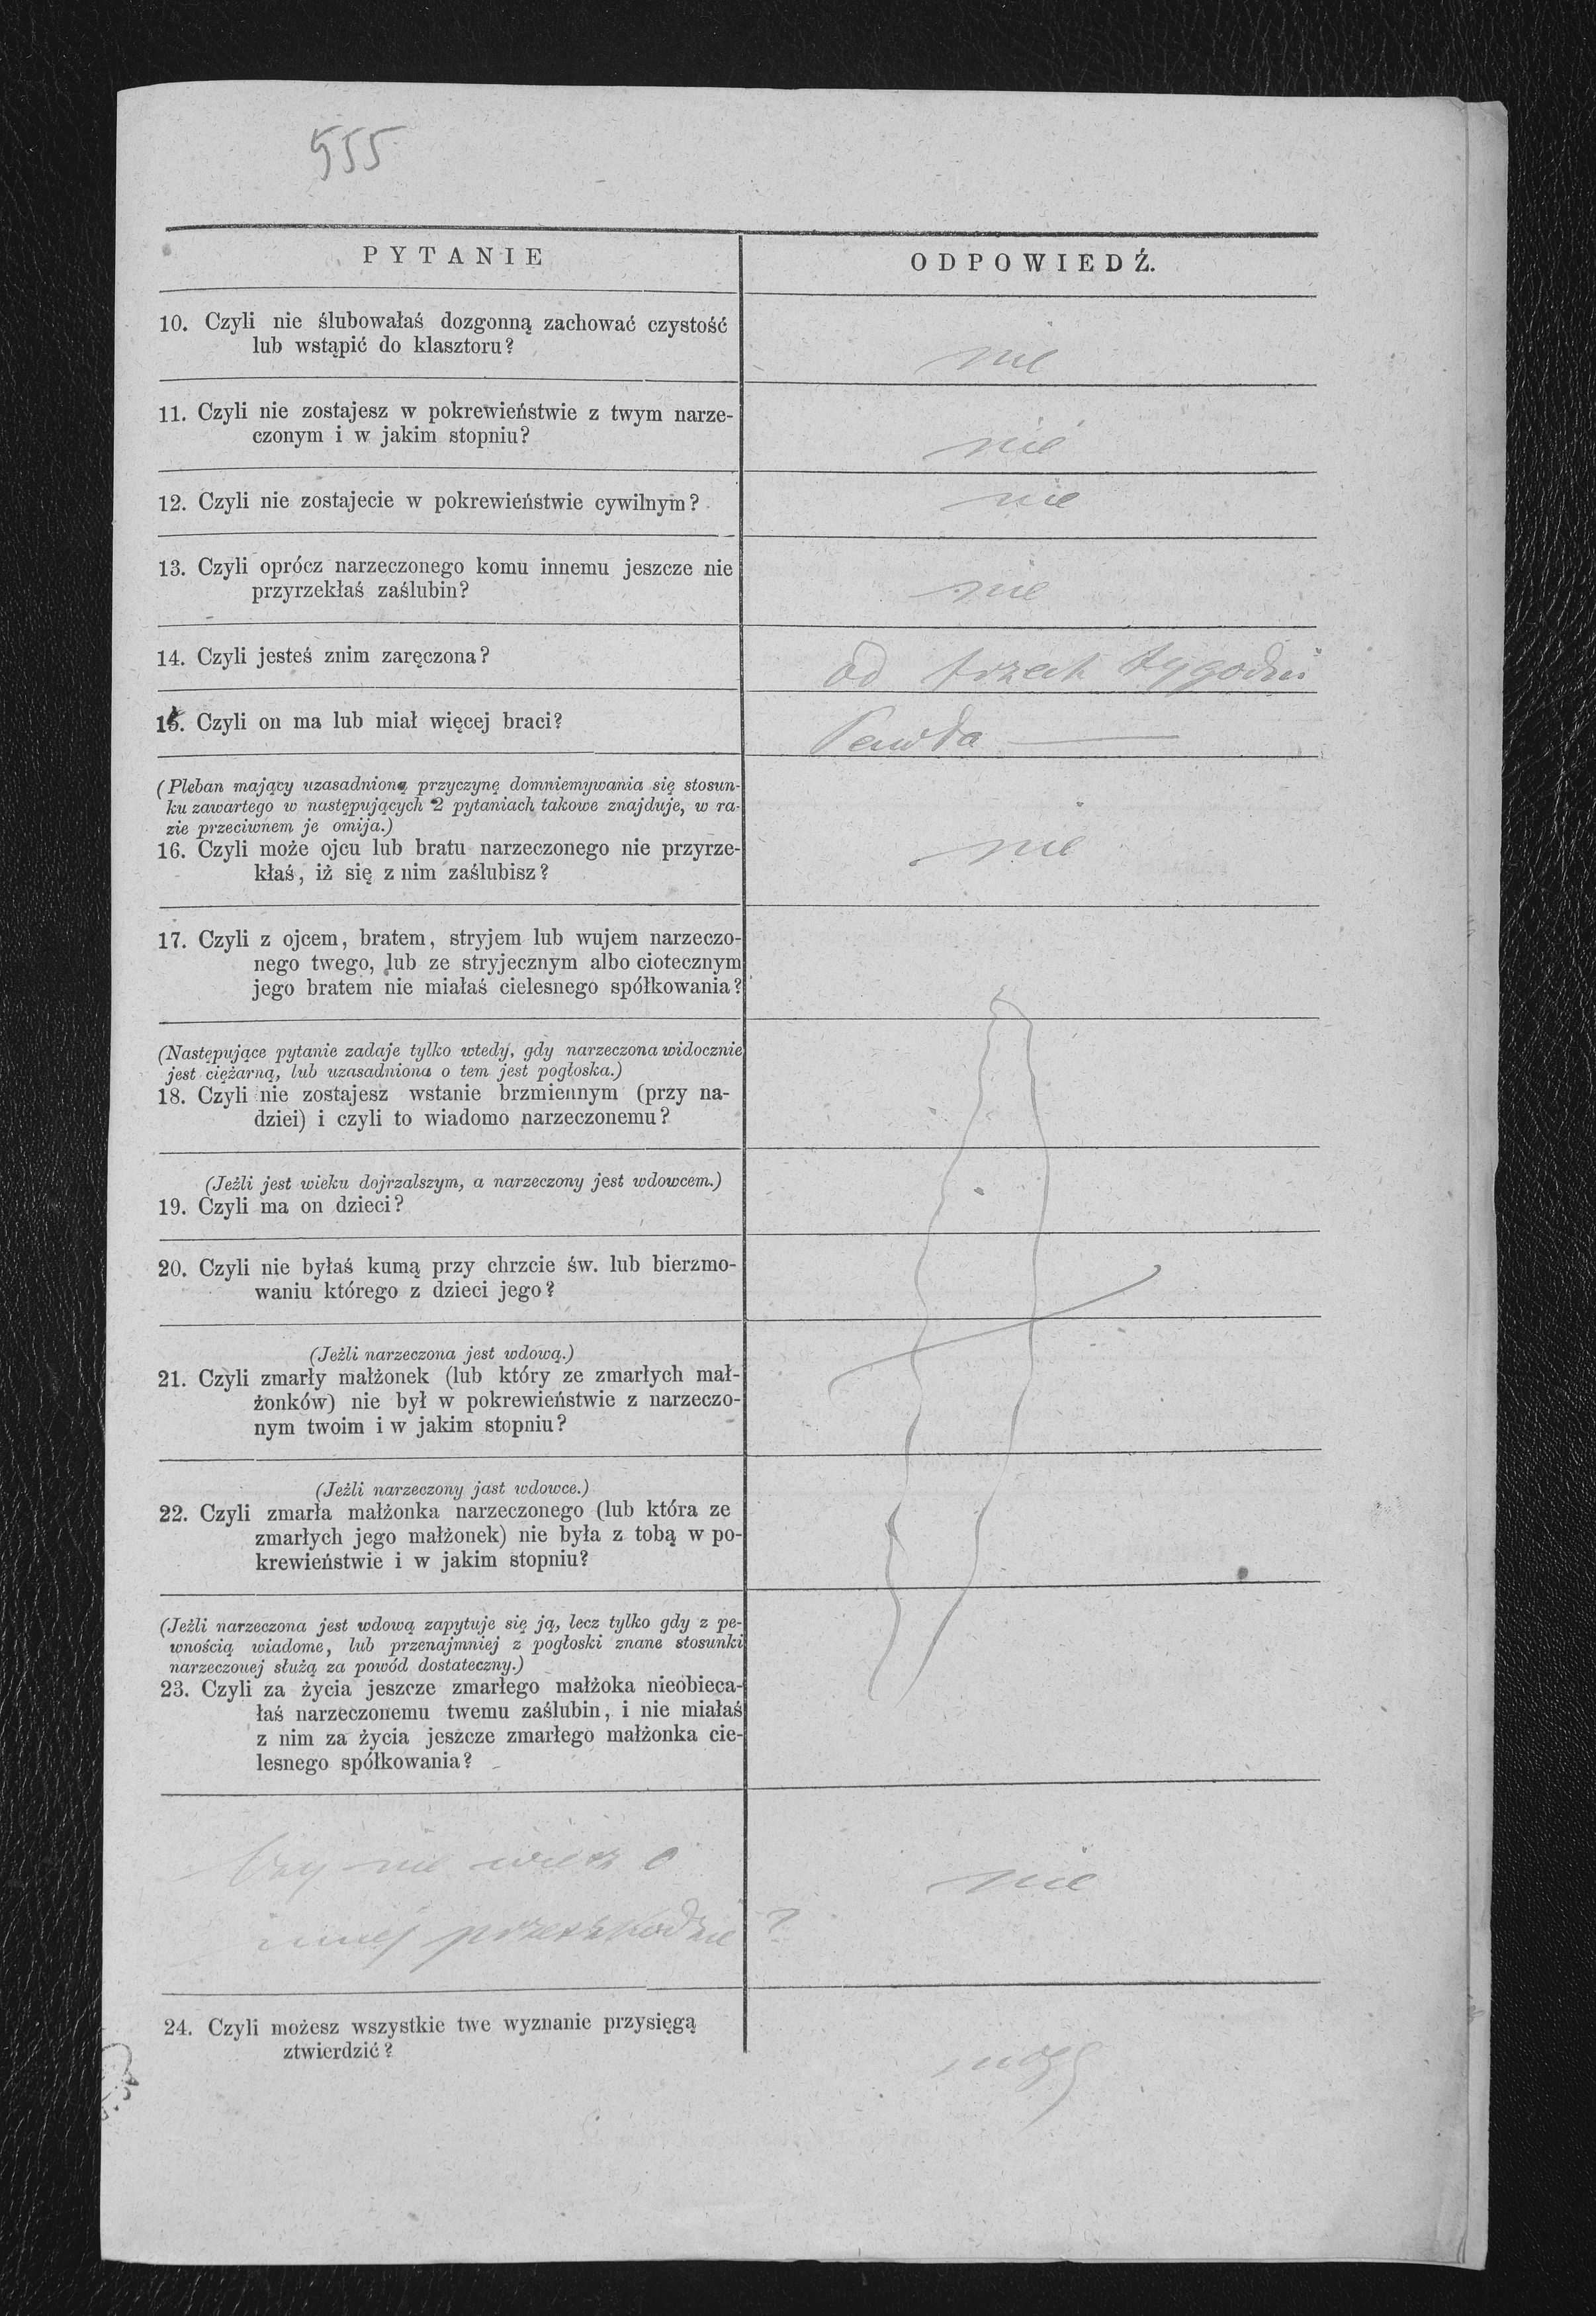 555
PYTANIE
ODPOWIEDŹ.
10. Czyli nie ślubowałaś dozgonną zachować czystość
lub wstąpić do klasztoru?
nie
11. Czyli nie zostajesz w pokrewieństwie z twym narze-
czonym i w jakim stopniu?
nie
12. Czyli nie zostajecie w pokrewieństwie cywilnym?
nie
13. Czyli oprócz narzeczonego komu innemu jeszcze nie
przyrzekłaś zaślubin?
nie
14. Czyli jesteś znim zaręczona?
od trzech tygodni
15. Czyli on ma lub miał więcej braci?
(Pleban mający uzasadnioną przyczynę domniemywania się stosun-
ku zawartego w następujących 2 pytaniach takowe znajduje, w ra-
zie przeciwnem je omija.)
16. Czyli może ojcu lub bratu narzeczonego nie przyrze-
kłaś, iż się z nim zaślubisz?
nie
17. Czyli z ojcem, bratem, stryjem lub wujem narzeczo-
nego twego, lub ze stryjecznym albo ciotecznym
jego bratem nie miałaś cielesnego spółkowania?
(Następujące pytanie zadaje tylko wtedy, gdy narzeczona widocznie
jest ciężarną, lub uzasadniona o tem jest pogłoska.)
18. Czyli nie zostajesz wstanie brzmiennym (przy na-
dziei) i czyli to wiadomo narzeczonemu?
(Jeżli jest wieku dojrzalszym, a narzeczony jest wdowcem.)
19. Czyli ma on dzieci?
20. Czyli nie byłaś kumą przy chrzcie św. lub bierzmo-
waniu którego z dzieci jego?
(Jeżli narzeczona jest wdową.)
21. Czyli zmarły małżonek (lub który ze zmarłych mał-
żonków) nie był w pokrewieństwie z narzeczo-
nym twoim i w jakim stopniu?
(Jeżli narzeczony jast wdowce.)
22. Czyli zmarła małżonka narzeczonego (lub która ze
zmarłych jego małżonek) nie była z tobą w po-
krewieństwie i w jakim stopniu?
(Jeżli narzeczona jest wdową zapytuje się ją, lecz tylko gdy z pe-
wnością wiadome, lub przenajmniej z pogłoski znane stosunki
narzeczouej służą za powód dostateczny.)
23. Czyli za życia jeszcze zmarłego małżoka nieobieca-
łaś narzeczonemu twemu zaślubin, i nie miałaś
z nim za życia jeszcze zmarłego małżonka cie-
lesnego spółkowania?
Czy nie wiesz o
innej przeszkodzie?
nie
24. Czyli możesz wszystkie twe wyznanie przysięgą
ztwierdzić?
mogę